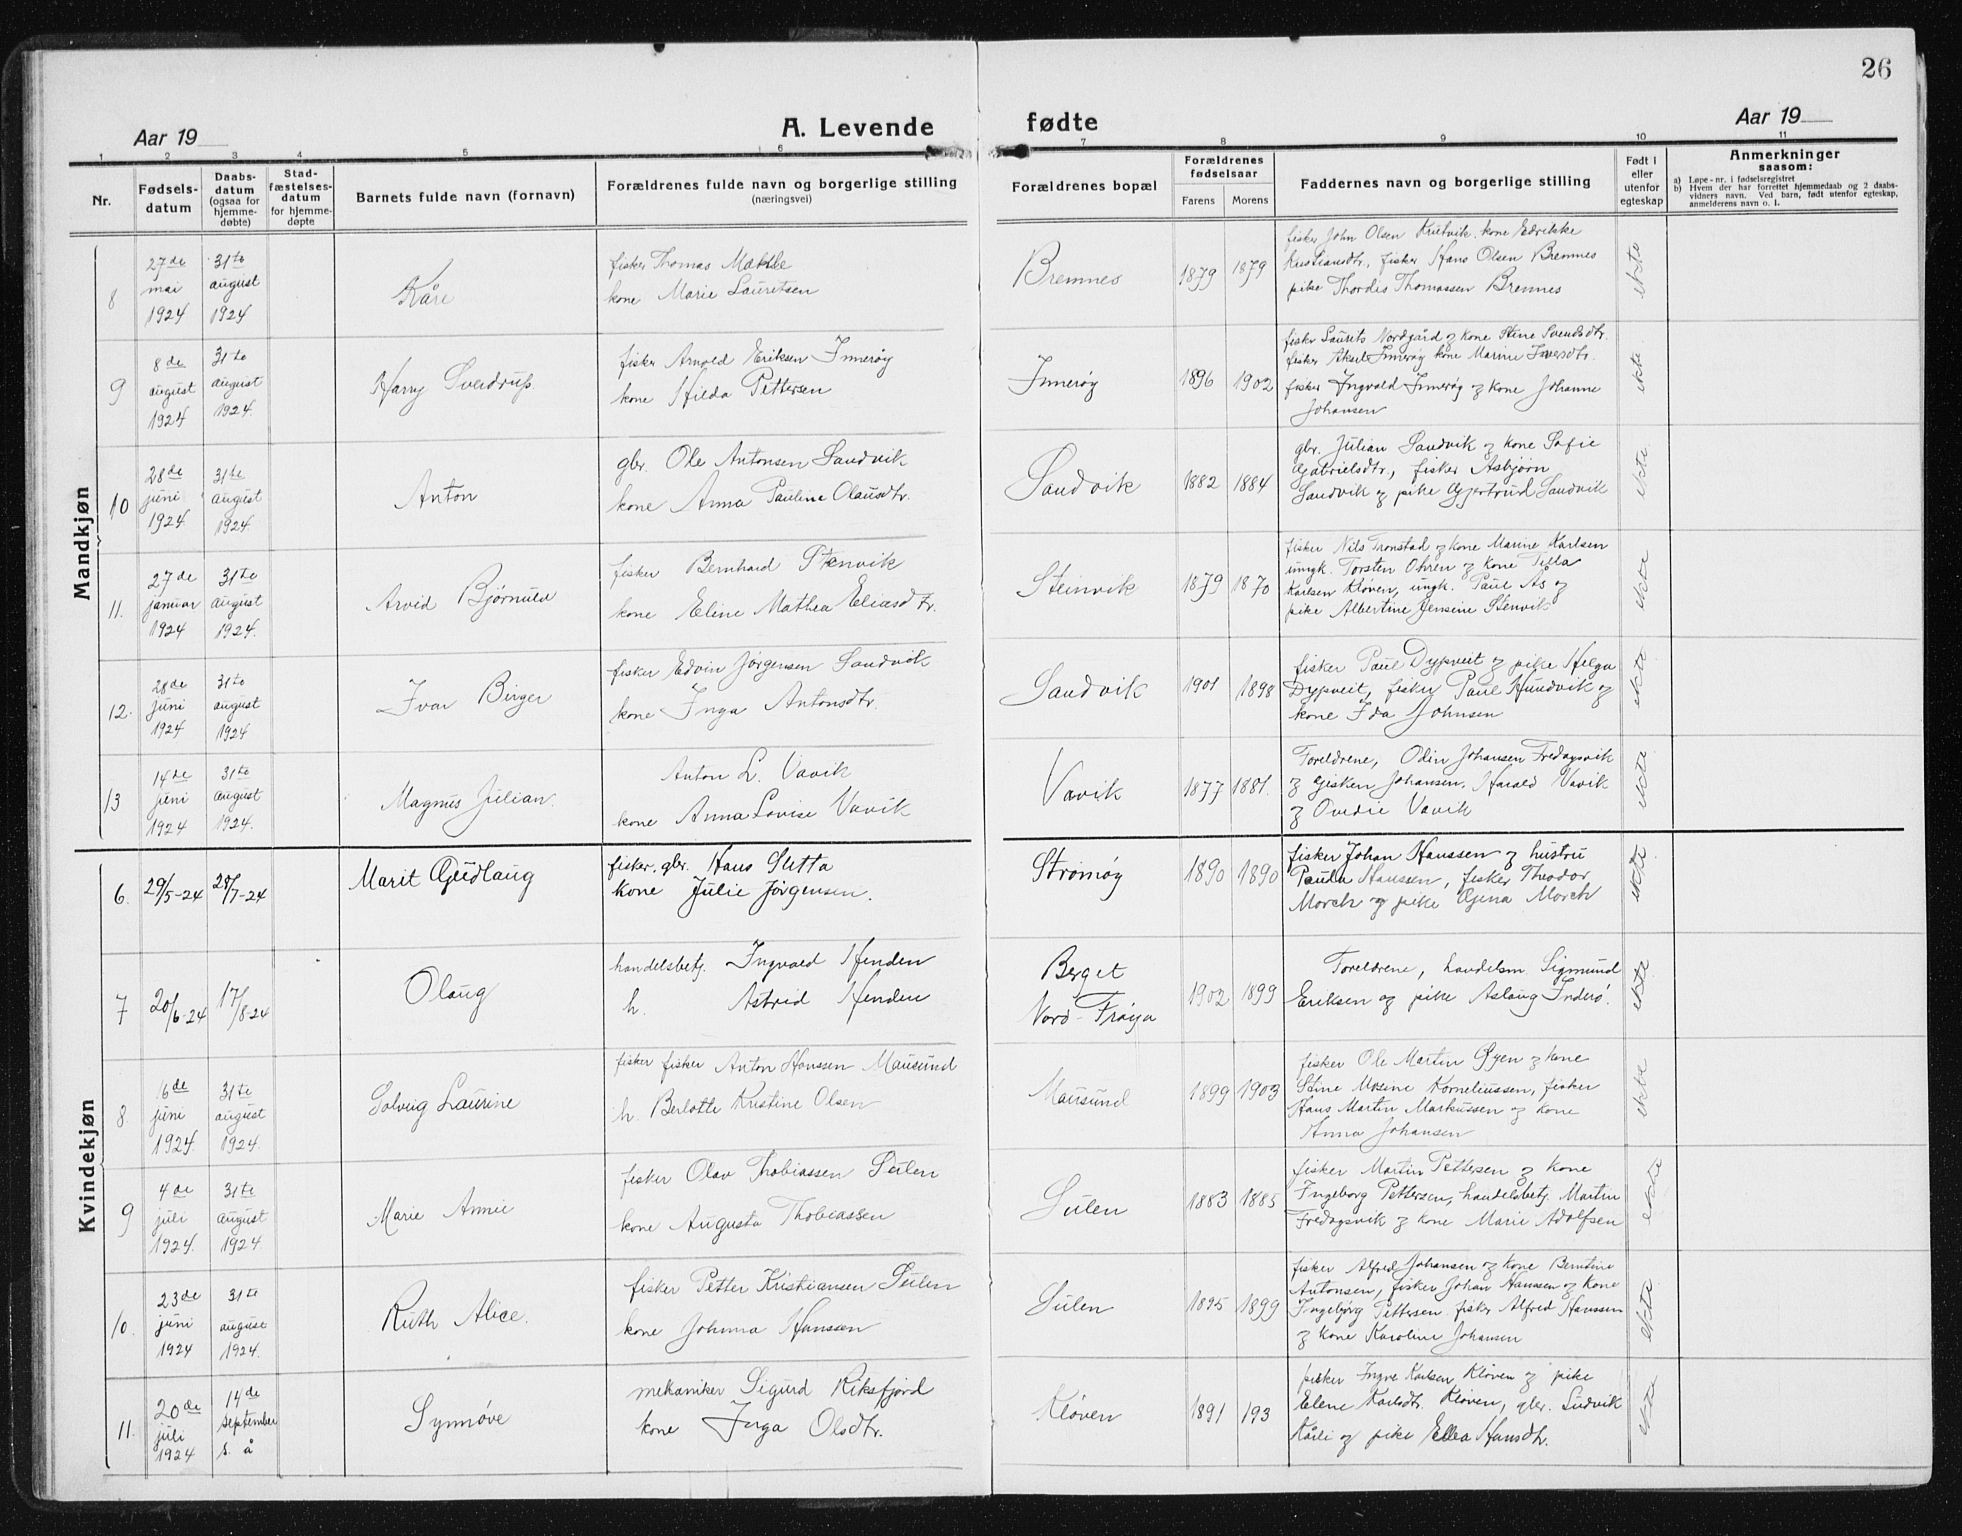 26
Aar 19
A. Levende fødte
Aar 19
1 2 3 4 5 6 7 8 9 10 11
Nr.
Fødsels-
datum
Daabs-
datum
(ogsaa for
hjemme-
døbte)
Stad-
fæstelses-
datum
for hjemme-
døpte
Barnets fulde navn (fornavn)
Forældrenes fulde navn og borgerlige stilling
(næringsvei)
Forældrenes bopæl
Forældrenes
fødselsaar
Farens Morens
Faddernes navn og borgerlige stilling
Født i
eller
utenfor
egteskap
Anmerkninger
saasom:
a) Løpe-nr. i fødselsregistret
b) Hvem der har forrettet hjemmedaab og 2 daabs-
vidners navn. Ved barn, født utenfor egteskap,
anmelderens navn o. l.
Mandkjøn
8
27de
mai
1924
31te
august
1924
Kåre
fisker Thomas
kone Marie Lauretsen
Bremnes
1879 1879
fisker John Olsen kone
Kristiansdtr, fisker Hans Olsen Bremnes
pike Thordis Thomassen Bremnes
ekte
9
8de
august
1924
31te
august
1924.
Harry Sverdrup.
fisker Arnold Eriksen Innerøy
kone Hilda Pettersen
Innerøy
1896 1902
fisker Laurits Nordgård og kone Stine Svendsdtr.
fisker Aksel Innerøy kone Marine Iversdtr.
fisker Ingvald Innerøy og kone Johanne
Johansen
ekte
10
28de
juni
1924
31te
august
1924
Anton
gbr. Ole Antonsen Sandvik
kone Anna Pauline Olausdtr.
Sandvik
1882 1884
gbr. Julian Sandvik og kone Sofie
Gabrielsdtr., fisker Asbjørn
Sandvik og pike Gjertrud Sandvik
ekte
11.
27de
januar
1924
31te
august
1924.
Arvid Bjørnulv
fisker Bernhard Stenvik
kone Eline Mathea Eliasdtr.
Steinvik
1879 1870
fisker Nils Tronstad og kone Marine Karlsen
ungk. Torsten Ohren og kone Tilla
Karlsen Kløven, ungk. Paul As og
pike Albertine Jensine Stenvik
ekte
12.
28de
juni
1924
31te
august
1924
Ivar Birger
fisker Edvin Jørgensen Sandvik
kone Inga Antonsdtr.
Sandvik
1901 1898
fisker Paul Dypveit og pike Helga
Dypveit, fisker Paul Hundvik og
kone Ida Johnsen
ekte
13
14de
juni
1924
31te
august
1924.
Magnus Julian.
Anton L. Vavik
kone Anna Lovise Vavik
Vavik
1877 1881.
Foreldrene, Odin Johansen Fredagsvik
og Gisken Johansen, Harald Vavik
og Ovedie Vavik
ekte
Kvindekjøn
6.
29/5-24
28/7-24
Marit Gudlaug
fisker, gbr. Hans Sletta
kone Julie Jørgensen.
Strømøy
1890 1890
fisker Johan Hanssen og hustru
Paula Hanssen, fisker Theodor
Morch og pike Gjena Morch
ekte
7
20/6-24
17/8-24
Olaug
handelsbetj. Ingvald Henden
h. Astrid Henden
Berget
Nord-Frøya
1902 1899
Foreldrene, handelsm. Sigmund
Eriksen og pike Aslaug Inderø.
ekte
8.
6de
juni
1924.
31te
august
1924.
Solveig Laurine
fisker fisker Anton Hanssen Mausund
h. Berlotte Kristine Olsen
Mausund
1899 1903
fisker Ole Martin Øyen og kone
Stine Mosene Korneliussen, fisker
Hans Martin Markussen og kone
Anna Johansen
ekte
9
4de
juli
1924.
31te
august
1924.
Marie Annie
fisker Olav Thobiassen Sulen
kone Augusta Thobiassen
Sulen
1883 1885
fisker Martin Pettersen og kone
Ingeborg Pettersen, handelsbetj. Martin
Fredagsvik og kone Marie Adolfsen
ekte
10.
23de
juni
1924
31te
august
1924.
Ruth Alice.
fisker Petter Kristiansen Sulen
kone Johnna Hanssen
Sulen
1895 1899
fisker Alfred Johansen og kone Berntine
Antonsen, fisker Johan Hanssen og kone
Ingebjørg Pettersen, fisker Alfred Hanssen
og kone Karoline Johansen
ekte
11.
20de
juli
1924
14de
september
s. å
Synnøve
mekaniker Sigurd Riksfjord
kone Inga Olsdtr.
Kløven
1891 193
fisker Ingve Karlsen Kløven og pike
Elene Karlsdtr. Kløven, gbr. Ludvik
Kårli og pike Ella Hansdtr.
ekte